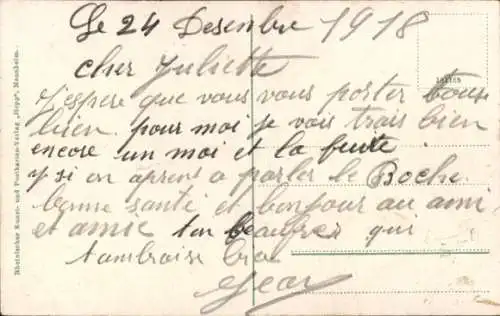 Le 24 Desembre 1918
cher Juliette
J'espere que vous vous porter touse
bien pour moi je vais trais bien
encore un moi et la fuite
y si on aprent a parler le Boche
bonne santé et bonjour au ami
et amie ton beaufrer qui
t'ambraise bien
Jean
Rheinischer Kunst- und Postkarten-Verlag „Hepp", Mannheim.